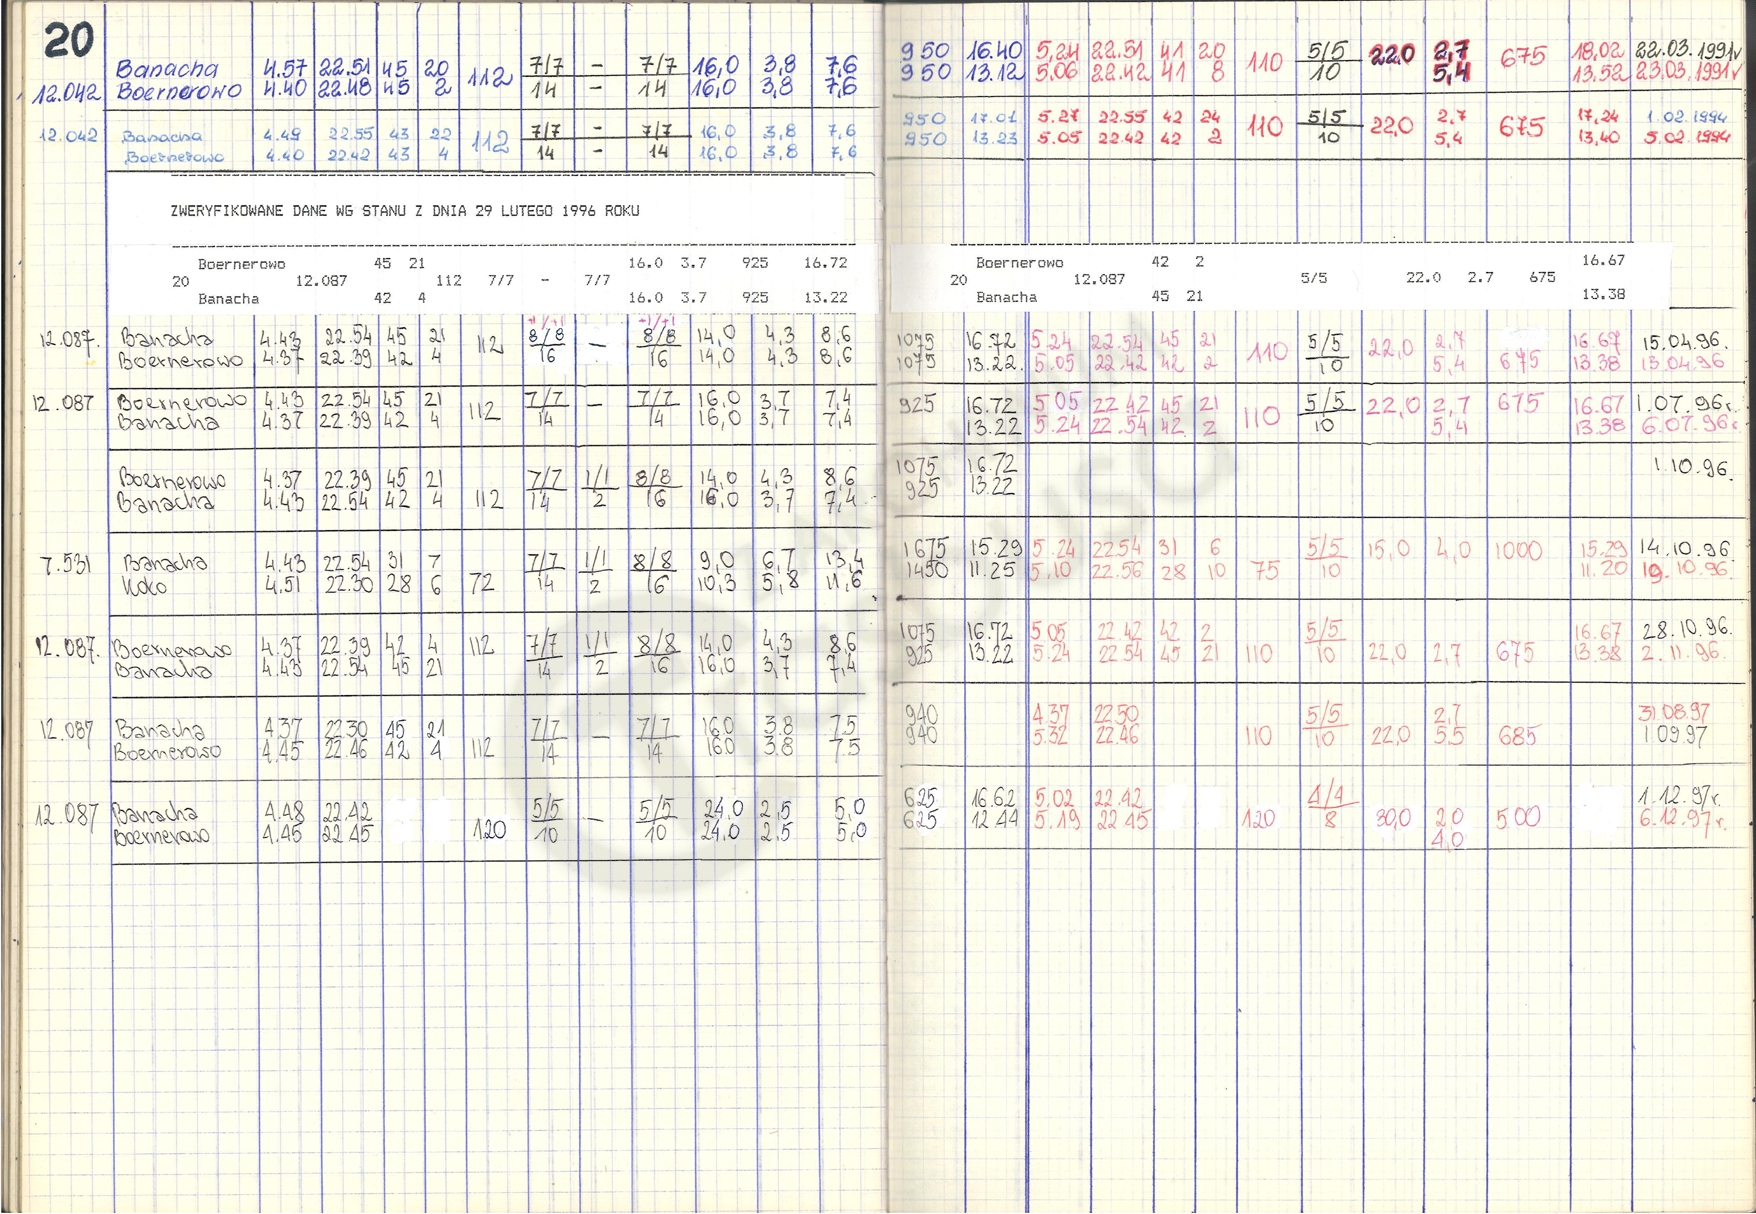 20
Banacha 4.57 22.51 45 20 112 7/7 – 7/7 16,0 3,8 7,6 950 16.40 5,24 22.51 41 20 110 5/5 22,0 2,7 675 18,02 22.03.1991r
12.042 Boernerowo 4.40 22.48 45 2 14 – 14 16,0 3,8 7,6 950 13.12 5.06 22.42 41 8 10 5,4 13,52 23.03.1991r
12.042 Banacha 4.49 22.55 43 22 112 7/7 – 7/7 16,0 3,8 7,6 950 17.01 5.27 22.55 42 24 110 5/5 22,0 2,7 675 17,24 1.02.1994
Boernerowo 4.40 22.42 43 4 14 – 14 16,0 3,8 7,6 950 13.23 5.05 22.42 42 2 10 5,4 13,40 5.02.1994
ZWERYFIKOWANE DANE WG STANU Z DNIA 29 LUTEGO 1996 ROKU
Boernerowo 45 21 16.0 3.7 925 16.72 Boernerowo 42 2 16.67
20 12.087 112 7/7 – 7/7 20 12.087 5/5 22.0 2.7 675
Banacha 42 4 16.0 3.7 925 13.22 Banacha 45 21 13.38
+1/+1 +1/+1
12.087. Banacha 4.43 22.54 45 21 112 8/8 – 8/8 14,0 4,3 8,6 1075 16.72 5.24 22.54 45 21 110 5/5 22,0 2,7 16.67 15.04.96.
Boernerowo 4.37 22.39 42 4 16 16 14,0 4,3 8,6 1075 13.22. 5.05 22.42 42 2 10 5,4 675 13.38 13.04.96
12.087 Boernerowo 4.43 22.54 45 21 112 7/7 – 7/7 16,0 3,7 7,4 925 16.72 5 05 22 42 45 21 110 5/5 22,0 2,7 675 16.67 1.07.96r.
Banacha 4.37 22.39 42 4 14 14 16,0 3,7 7,4 13.22 5.24 22.54 42 2 10 5,4 13.38 6.07.96r.
Boernerowo 4.37 22.39 45 21 7/7 1/1 8/8 14,0 4,3 8,6 1075 16.72 1.10.96.
Banacha 4.43 22.54 42 4 112 14 2 16 16,0 3,7 7,4 925 13.22
7.531 Banacha 4.43 22.54 31 7 7/7 1/1 8/8 9,0 6,7 13,4 1675 15.29 5.24 22.54 31 6 5/5 15,0 4,0 1000 15.29 14.10.96
Koło 4.51 22.30 28 6 72 14 2 16 10,3 5,8 11,6 1450 11.25 5.10 22.56 28 10 75 10 11.20 19.10.96.
12.087. Boernerowo 4.37 22.39 42 4 112 7/7 1/1 8/8 14,0 4,3 8,6 1075 16.72 5 05 22 42 42 2 5/5 16.67 28.10.96.
Banacha 4.43 22.54 45 21 14 2 16 16,0 3,7 7,4 925 13.22 5.24 22.54 45 21 110 10 22,0 2,7 675 13.38 2.11.96.
12.087 Banacha 4.37 22.30 45 21 7/7 – 7/7 16.0 3.8 7.5 940 4.37 22.50 5/5 2,7 31.08.97
Boernerowo 4.45 22.46 42 4 112 14 14 16.0 3.8 7.5 940 5.32 22.46 110 10 22,0 5.5 685 1 09.97
12.087 Banacha 4.48 22.42 5/5 – 5/5 24.0 2,5 5,0 625 16.62 5.02 22.42 4/4 1.12.97r.
Boernerowo 4.45 22.45 120 10 10 24.0 2,5 5,0 625 12.44 5.19 22 45 120 8 30,0 2,0 5.00 6.12.97r.
4,0